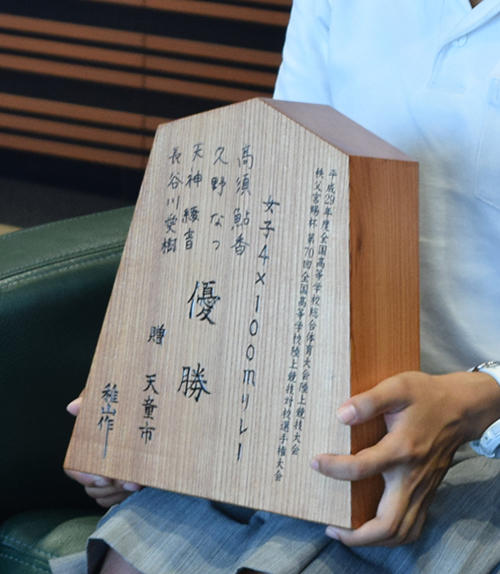 平成29年度全国高等学校総合体育大会陸上競技大会
秩父宮賜杯 第70回全国高等学校陸上競技対校選手権大会
女子4×100mリレー
高須 鮎香
久野 なつ
天神 綾音
長谷川 愛樹
優勝
贈 天童市
雅山作